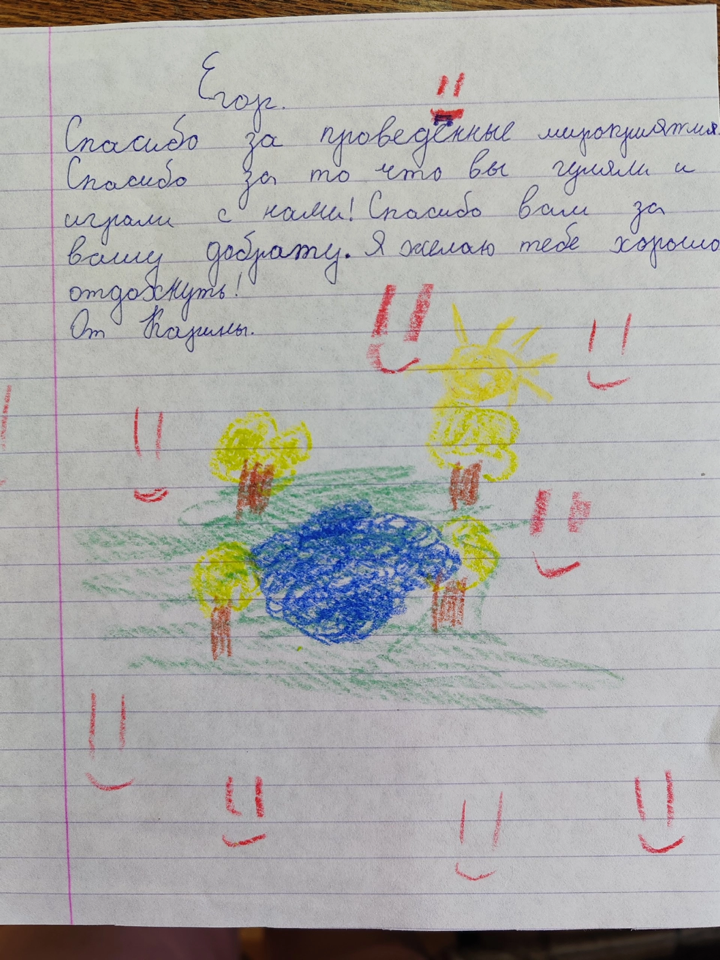 Егор.
Спасибо за проведённые мироприятия.
Спасибо за то что вы гуляли и
играли с нами! Спасибо вам за
вашу добрату. Я желаю тебе хорошо
отдохнуть!
От Карины.